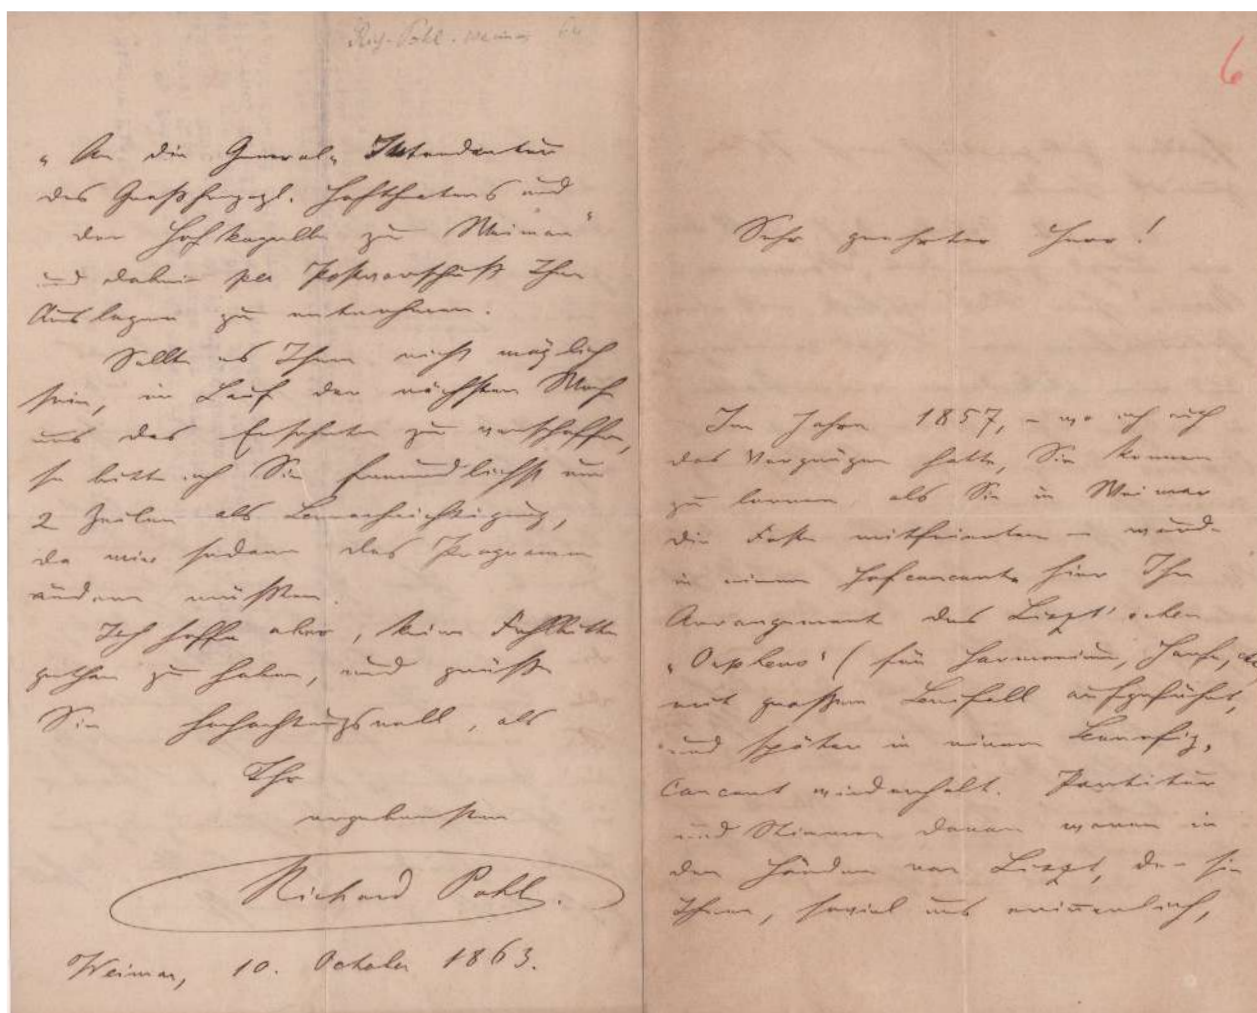 Rich. Pohl. Weimar
„An die General-Intendantur
des Großherzogl. Hoftheaters und
der Hofkapelle zu Weimar“
und dabei per Postvorschuß Ihre
Auslagen zu entnehmen.
Sollte es Ihnen nicht möglich
sein, im Lauf der nächsten Woche
uns das Ersehnte zu verschaffen,
so bitte ich Sie freundlichst um
2 Zeilen als Benachrichtigung,
da wir sodann das Programm
ändern müßten.
Ich hoffe aber, keine Fehlbitte
gethan zu haben, und grüße
Sie hochachtungsvoll, als
Ihr
ergebenster
Richard Pohl.
Weimar, 10. October 1863.
6
Sehr geehrter Herr!
Im Jahre 1857, – wo ich auch
das Vergnügen hatte, Sie kennen
zu lernen, als Sie in Weimar
die Feste mitfeierten – wurde
in einem Hofconcerte hier Ihr
Arrangement des Liszt'schen
„Orpheus“ (für Harmonium, Harfe, etc)
mit großem Beifall aufgeführt,
und später in einem Benefiz-
Concert wiederholt. Partitur
und Stimmen davon waren in
den Händen von Liszt, der sie
Ihnen, soviel uns erinnerlich,